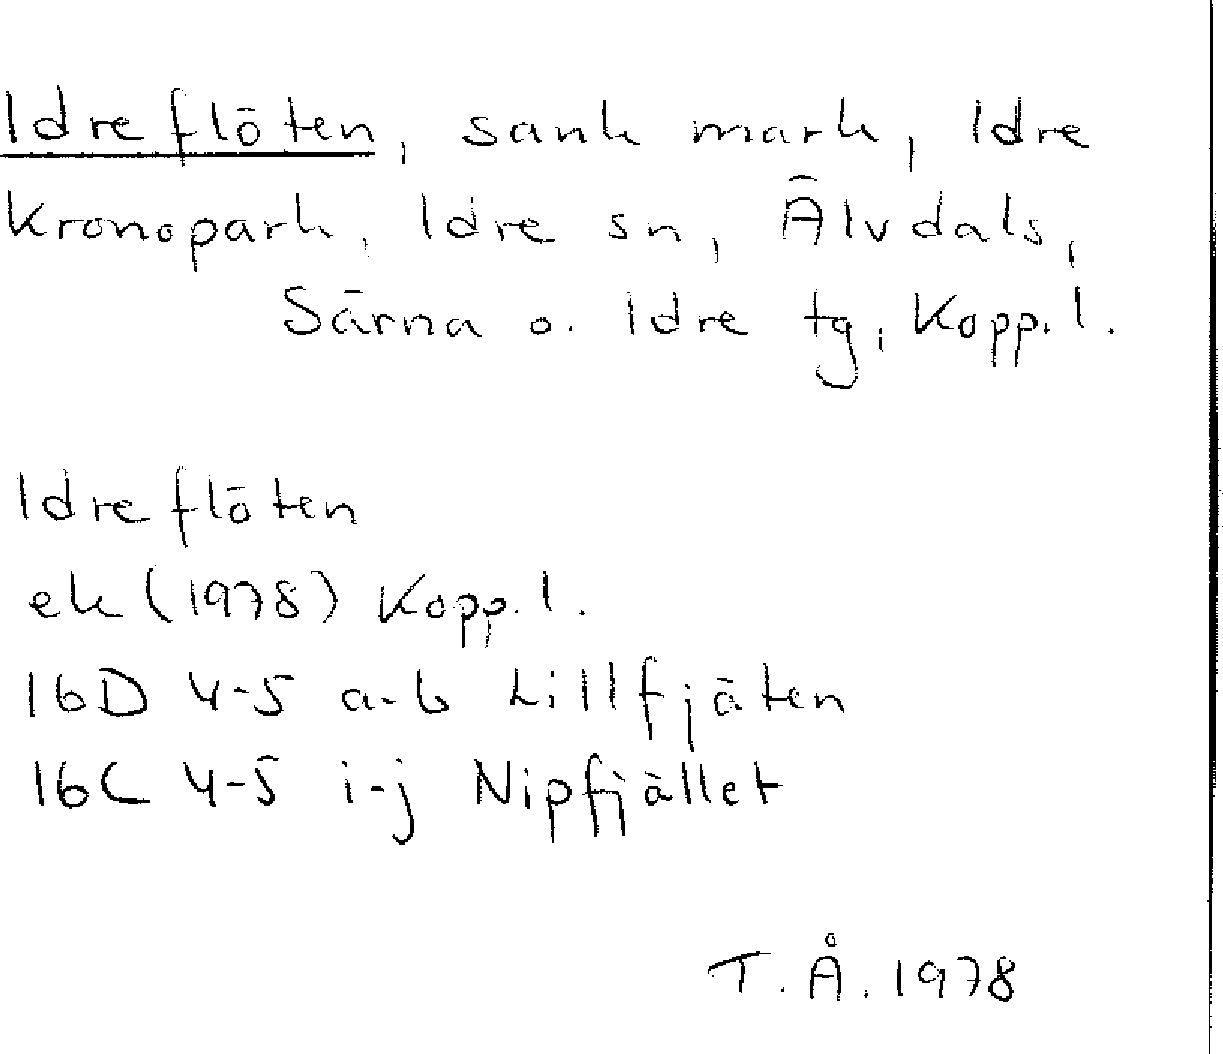 Idreflöten, sank mark, Idre
Kronopark, Idre sn, Älvdals,
Särna o. Idre tg, Kopp. l.
Idreflöten
ek (1978) Kopp. l.
16D 4-5 a-b Lillfjäten
16C 4-5 i-j Nipfjället
T. Å. 1978